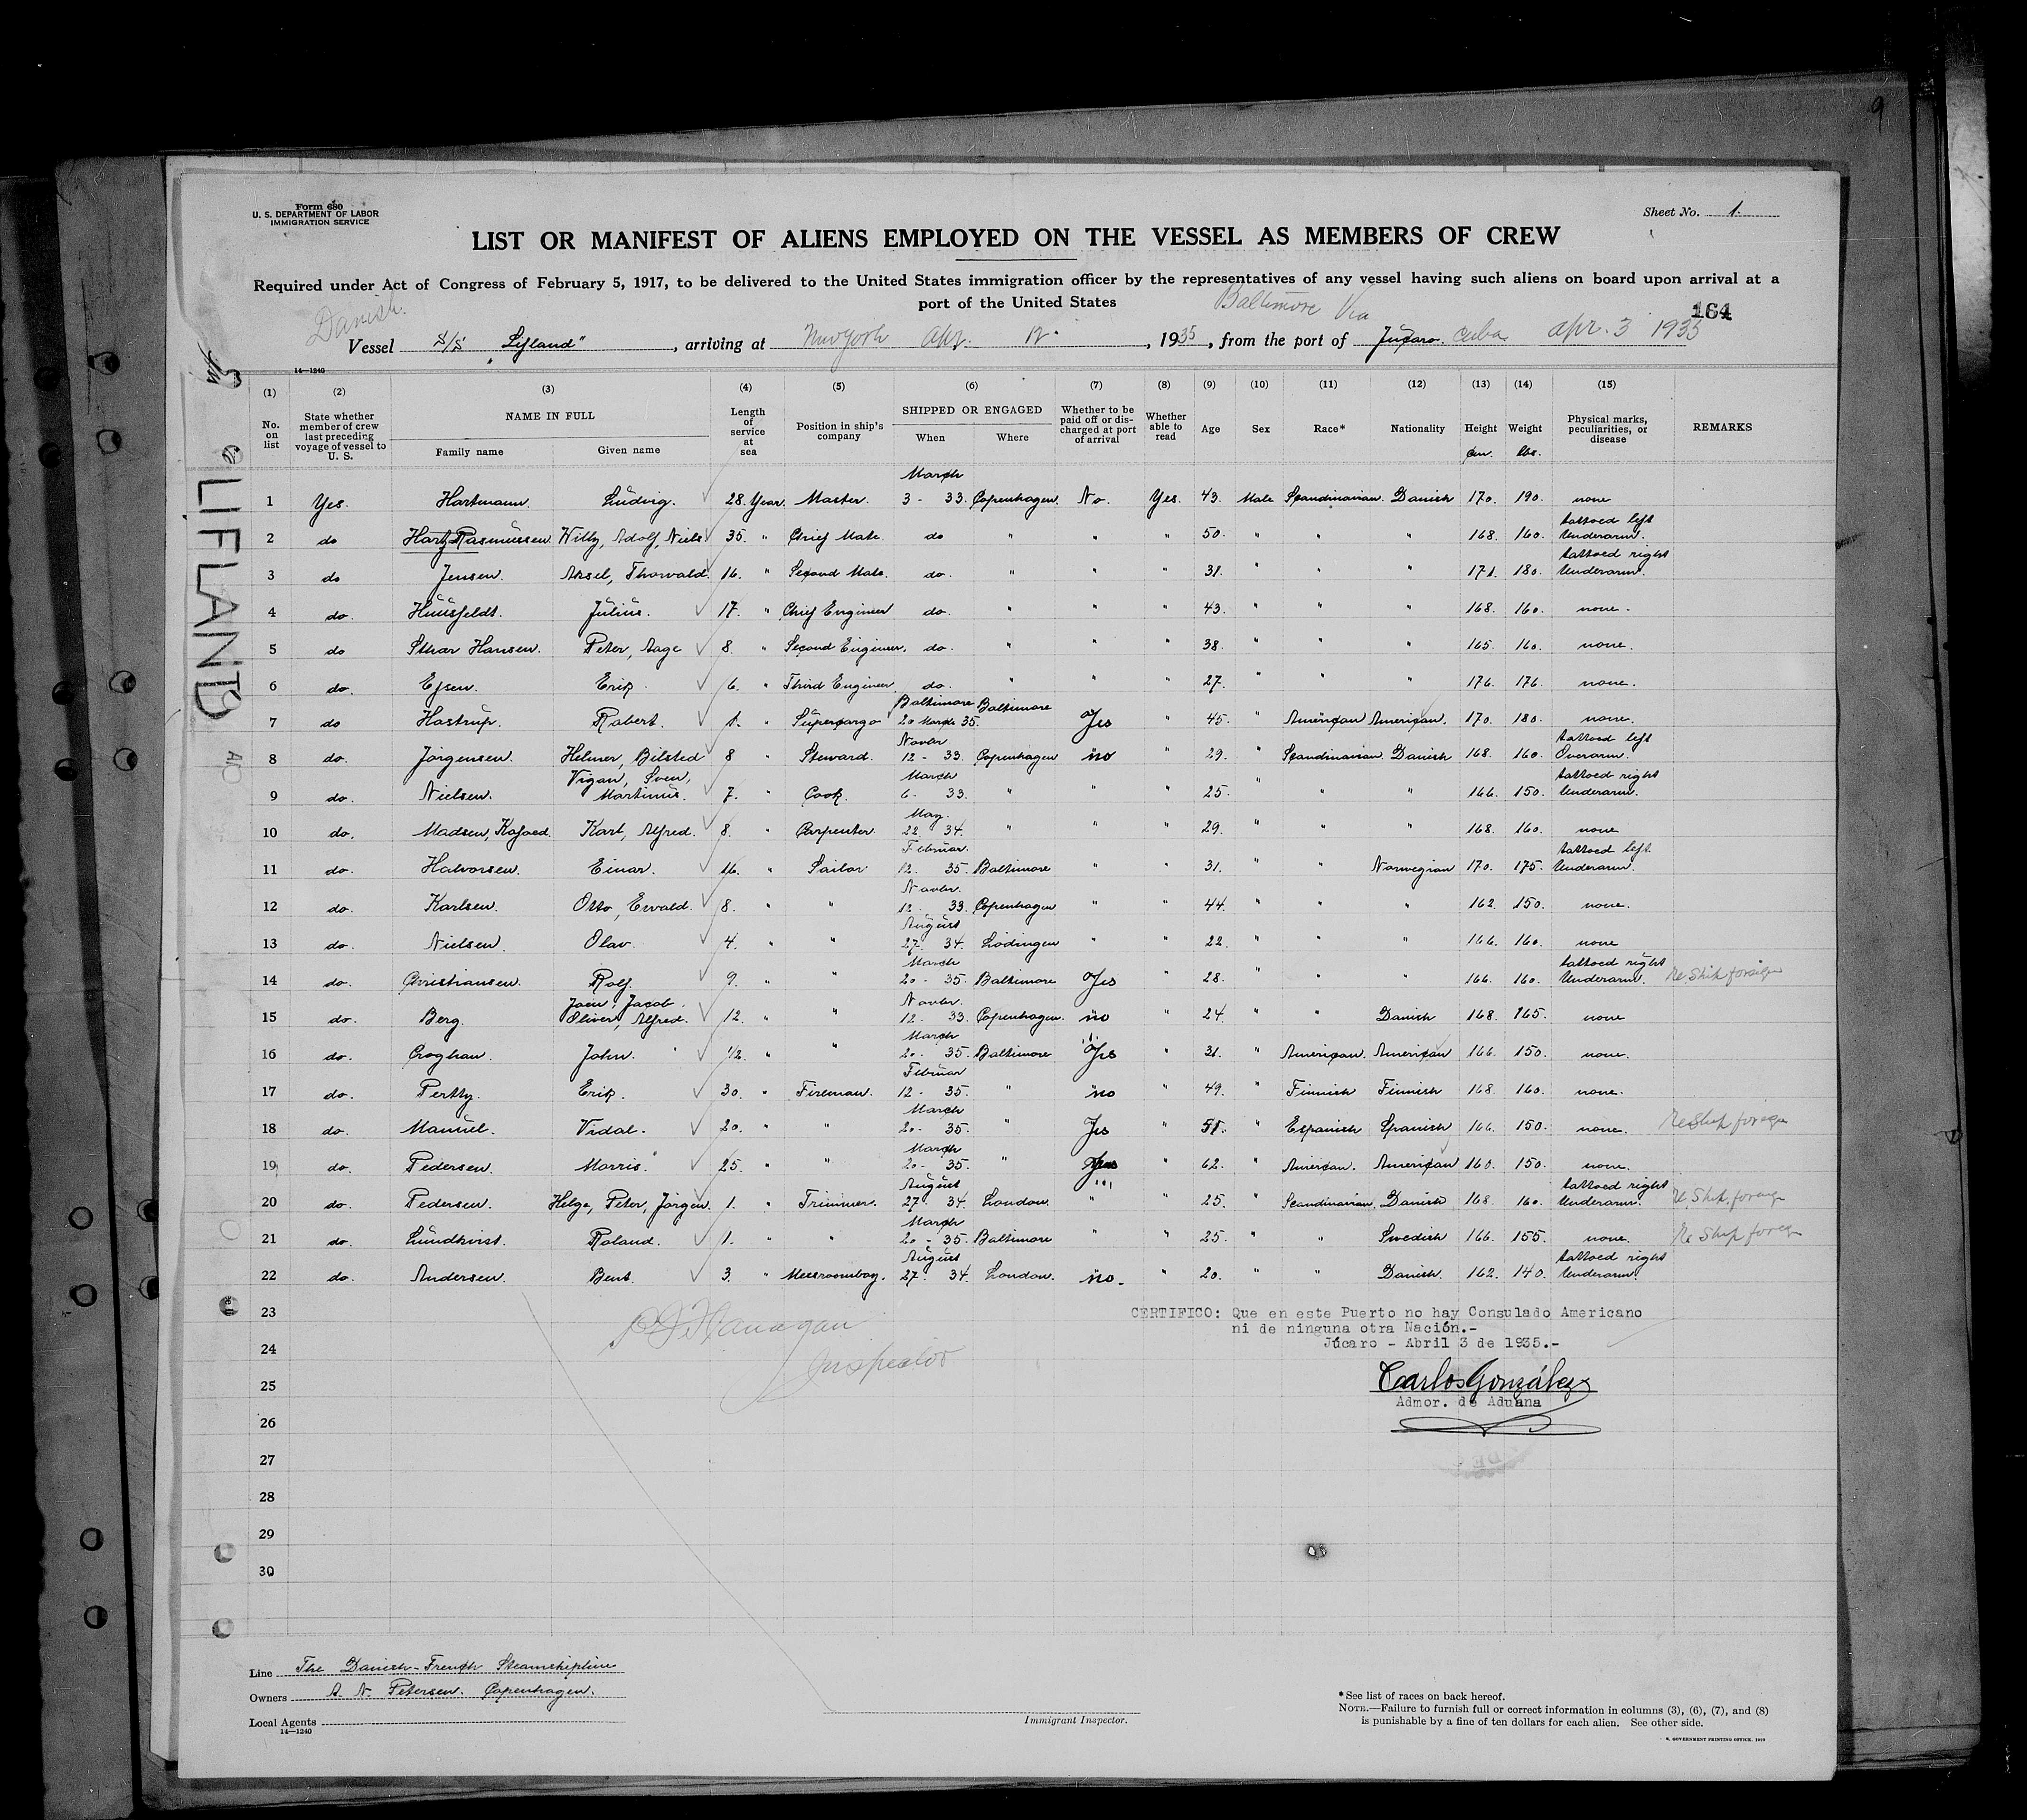 9
Form 680
U. S. DEPARTMENT OF LABOR
IMMIGRATION SERVICE
Sheet No. 1.
LIST OR MANIFEST OF ALIENS EMPLOYED ON THE VESSEL AS MEMBERS OF CREW
Required under Act of Congress of February 5, 1917, to be delivered to the United States immigration officer by the representatives of any vessel having such aliens on board upon arrival at a
port of the United States
Danish.
Baltimore Via
164
Vessel S/S "Lifland", arriving at New York Apr. 12, 1935, from the port of Jucaro. Cuba Apr. 3 1935
LIFLAND
14—1240
(1) (2) (3) (4) (5) (6) (7) (8) (9) (10) (11) (12) (13) (14) (15)
No. on list State whether member of crew last preceding voyage of vessel to U. S. NAME IN FULL Family name Given name Length of service at sea Position in ship's company SHIPPED OR ENGAGED When Where Whether to be paid off or discharged at port of arrival Whether able to read Age Sex Race* Nationality Height cm. Weight lbs. Physical marks, peculiarities, or disease REMARKS
1 Yes. Hartmann. Ludvig. 28. Year. Master. March 3 - 33. Copenhagen. No. Yes. 43. Male Scandinavian. Danish 170. 190. none
2 do Hartz Rasmussen. Willy, Adolf, Niels 35. " Chief Mate. do " " " 50. " " " 168. 160. tattoed left Underarm.
3 do Jensen. Aksel, Thorvald. 16. " Second Mate. do. " " " 31. " " " 171. 180. tattoed right Underarm.
4 do. Huusfeldt. Julius. 17. " Chief Engineer do. " " " 43. " " " 168. 160. none.
5 do Sthær Hansen. Peter, Aage 8. " Second Engineer. do. " " " 38. " " " 165. 160. none.
6 do. Ejsen. Erik. 6. " Third Engineer do. " " " 27. " " " 176. 176. none.
7 do Hastrup. Robert. 1. " Supercargo Baltimore 20 March 35. Baltimore Yes " 45. " American American. 170. 180. none.
8 do. Jørgensen. Helmer, Bilsted 8 " Steward. Novbr 12 - 33. Copenhagen no " 29. " Scandinavian. Danish 168. 160. tattoed left Overarm.
9 do. Nielsen. Vigan, Sven, Martinus. 7. " Cook. March 6 - 33. " " " 25. " " " 166. 150. tattoed right Underarm.
10 do. Madsen, Kofoed. Karl, Alfred. 8. " Carpenter. May. 22. 34. " " " 29. " " " 168. 160. none
11 do. Halvorsen. Einar. 16. " Sailor Februar. 12. 35. Baltimore " " 31. " " Norwegian 170. 175. tattoed left Underarm.
12 do. Karlsen. Otto, Ewald. 8. " " Novbr. 12. 33. Copenhagen " " 44. " " " 162. 150. none.
13 do. Nielsen. Olav. 4. " " August 27- 34. Lødingen " " 22. " " " 166. 160. none
14 do. Christiansen. Rolf. 9. " " March 20 - 35. Baltimore Yes " 28. " " " 166. 160. tattoed right Underarm. Re Ship foreign
15 do. Berg. Jacob. Oliver, Alfred. 12. " " Novbr. 12 - 33. Copenhagen. no " 24. " " Danish 168. 165. none
16 do. Croghan. John. 1/2. " " March 20 - 35. Baltimore Yes " 31. " American. American 166. 150. none.
17 do. Pertty. Erik. 30. " Fireman. Februar 12 - 35. " no " 49. " Finnish Finnish 168. 160. none.
18 do. Manuel. Vidal. 20. " " March 20 - 35. " Yes " 51. " Espanish Spanish 166. 150. none. Re Ship foreign
19 do. Pedersen. Morris. 25. " " March 20 - 35. " Yes " 62. " American. American 160. 150. none.
20 do. Pedersen. Helge, Peter, Jørgen. 1. " Trimmer. August 27. 34. London. " " 25. " Scandinavian. Danish 168. 160. tattoed right Underarm. Re Ship foreign
21 do. Lundkvist. Roland. 1. " " March 20 - 35. Baltimore " " 25. " " Swedish 166. 155. none. Re Ship foreign
22 do. Andersen. Bent. 3. " Messroomboy. August 27. 34. London. no. " 20. " " Danish. 162. 140. tattoed right Underarm.
23
24
25
26
27
28
29
30
Flanagan
Inspector
CERTIFICO: Que en este Puerto no hay Consulado Americano
ni de ninguna otra Nación.-
Júcaro - Abril 3 de 1935.-
Carlos González
Admor. de Aduana
Line The Danish-French Steamshipline
Owners A. N. Petersen. Copenhagen.
Local Agents
14—1240
Immigrant Inspector.
*See list of races on back hereof.
NOTE.—Failure to furnish full or correct information in columns (3), (6), (7), and (8)
is punishable by a fine of ten dollars for each alien. See other side.
GOVERNMENT PRINTING OFFICE.